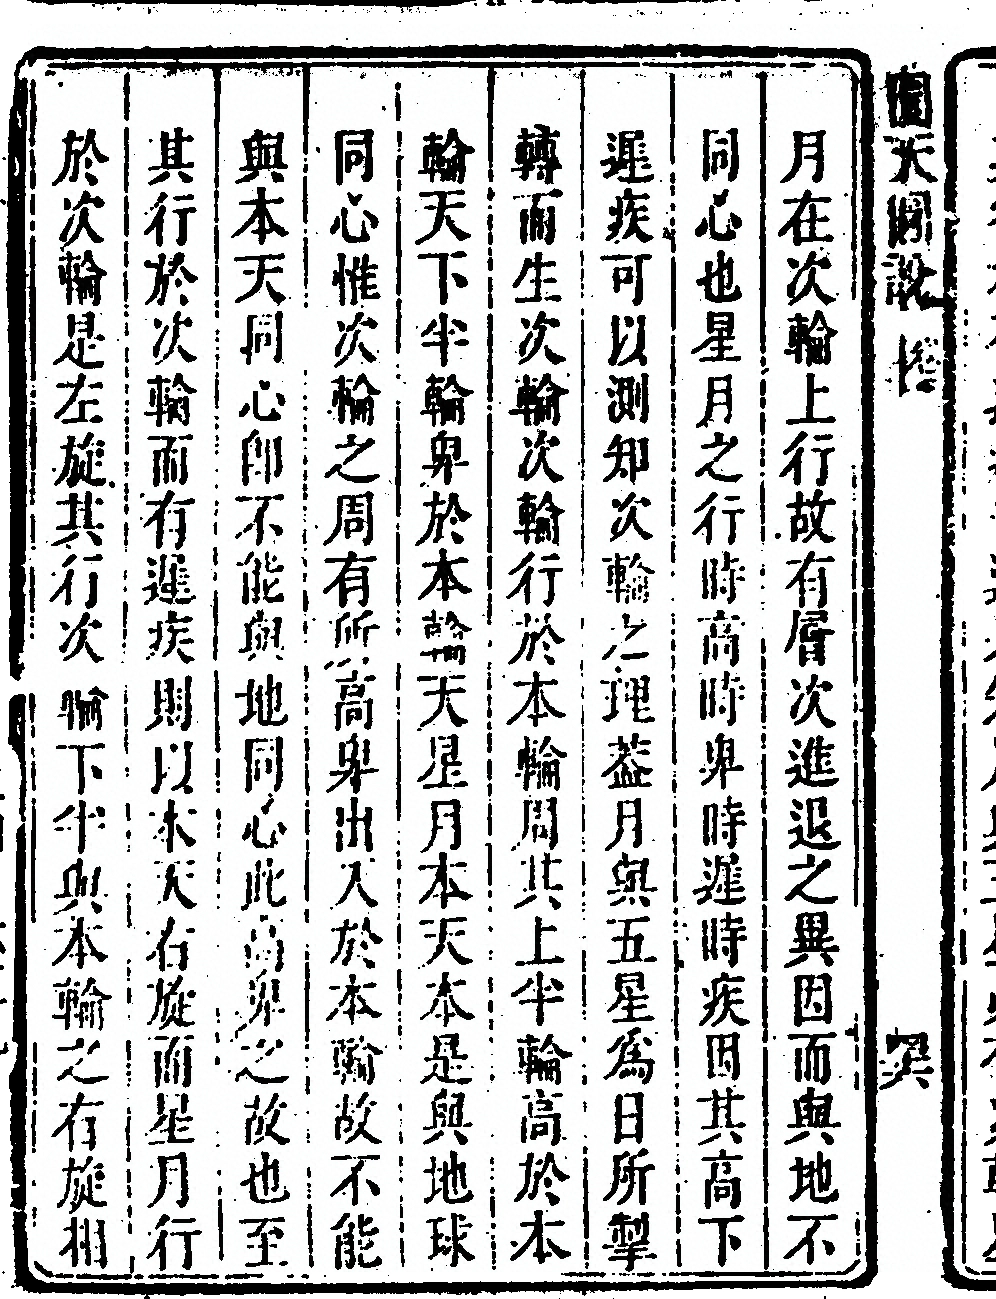 圜天圖說
月在次輪上行故有層次進退之異因而與地不
同心也星月之行時高時卑時遲時疾因其高下
遲疾可以測知次輪之理葢月與五星爲日所掣
轉而生次輪次輪行於本輪周其上半輪高於本
輪天下半輪卑於本輪天星月本天本是與地球
同心惟次輪之周有所高卑出入於本輪故不能
與本天同心卽不能與地同心此高卑之故也至
其行於次輪而有遲疾則以本天右旋而星月行
於次輪是左旋其行次輪下半與本輪之右旋相